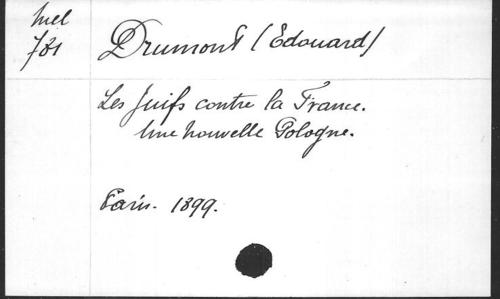 Mel
781
Drumont (Edouard)
Les Juifs contre la France.
Une nouvelle Pologne.
Paris. 1899.